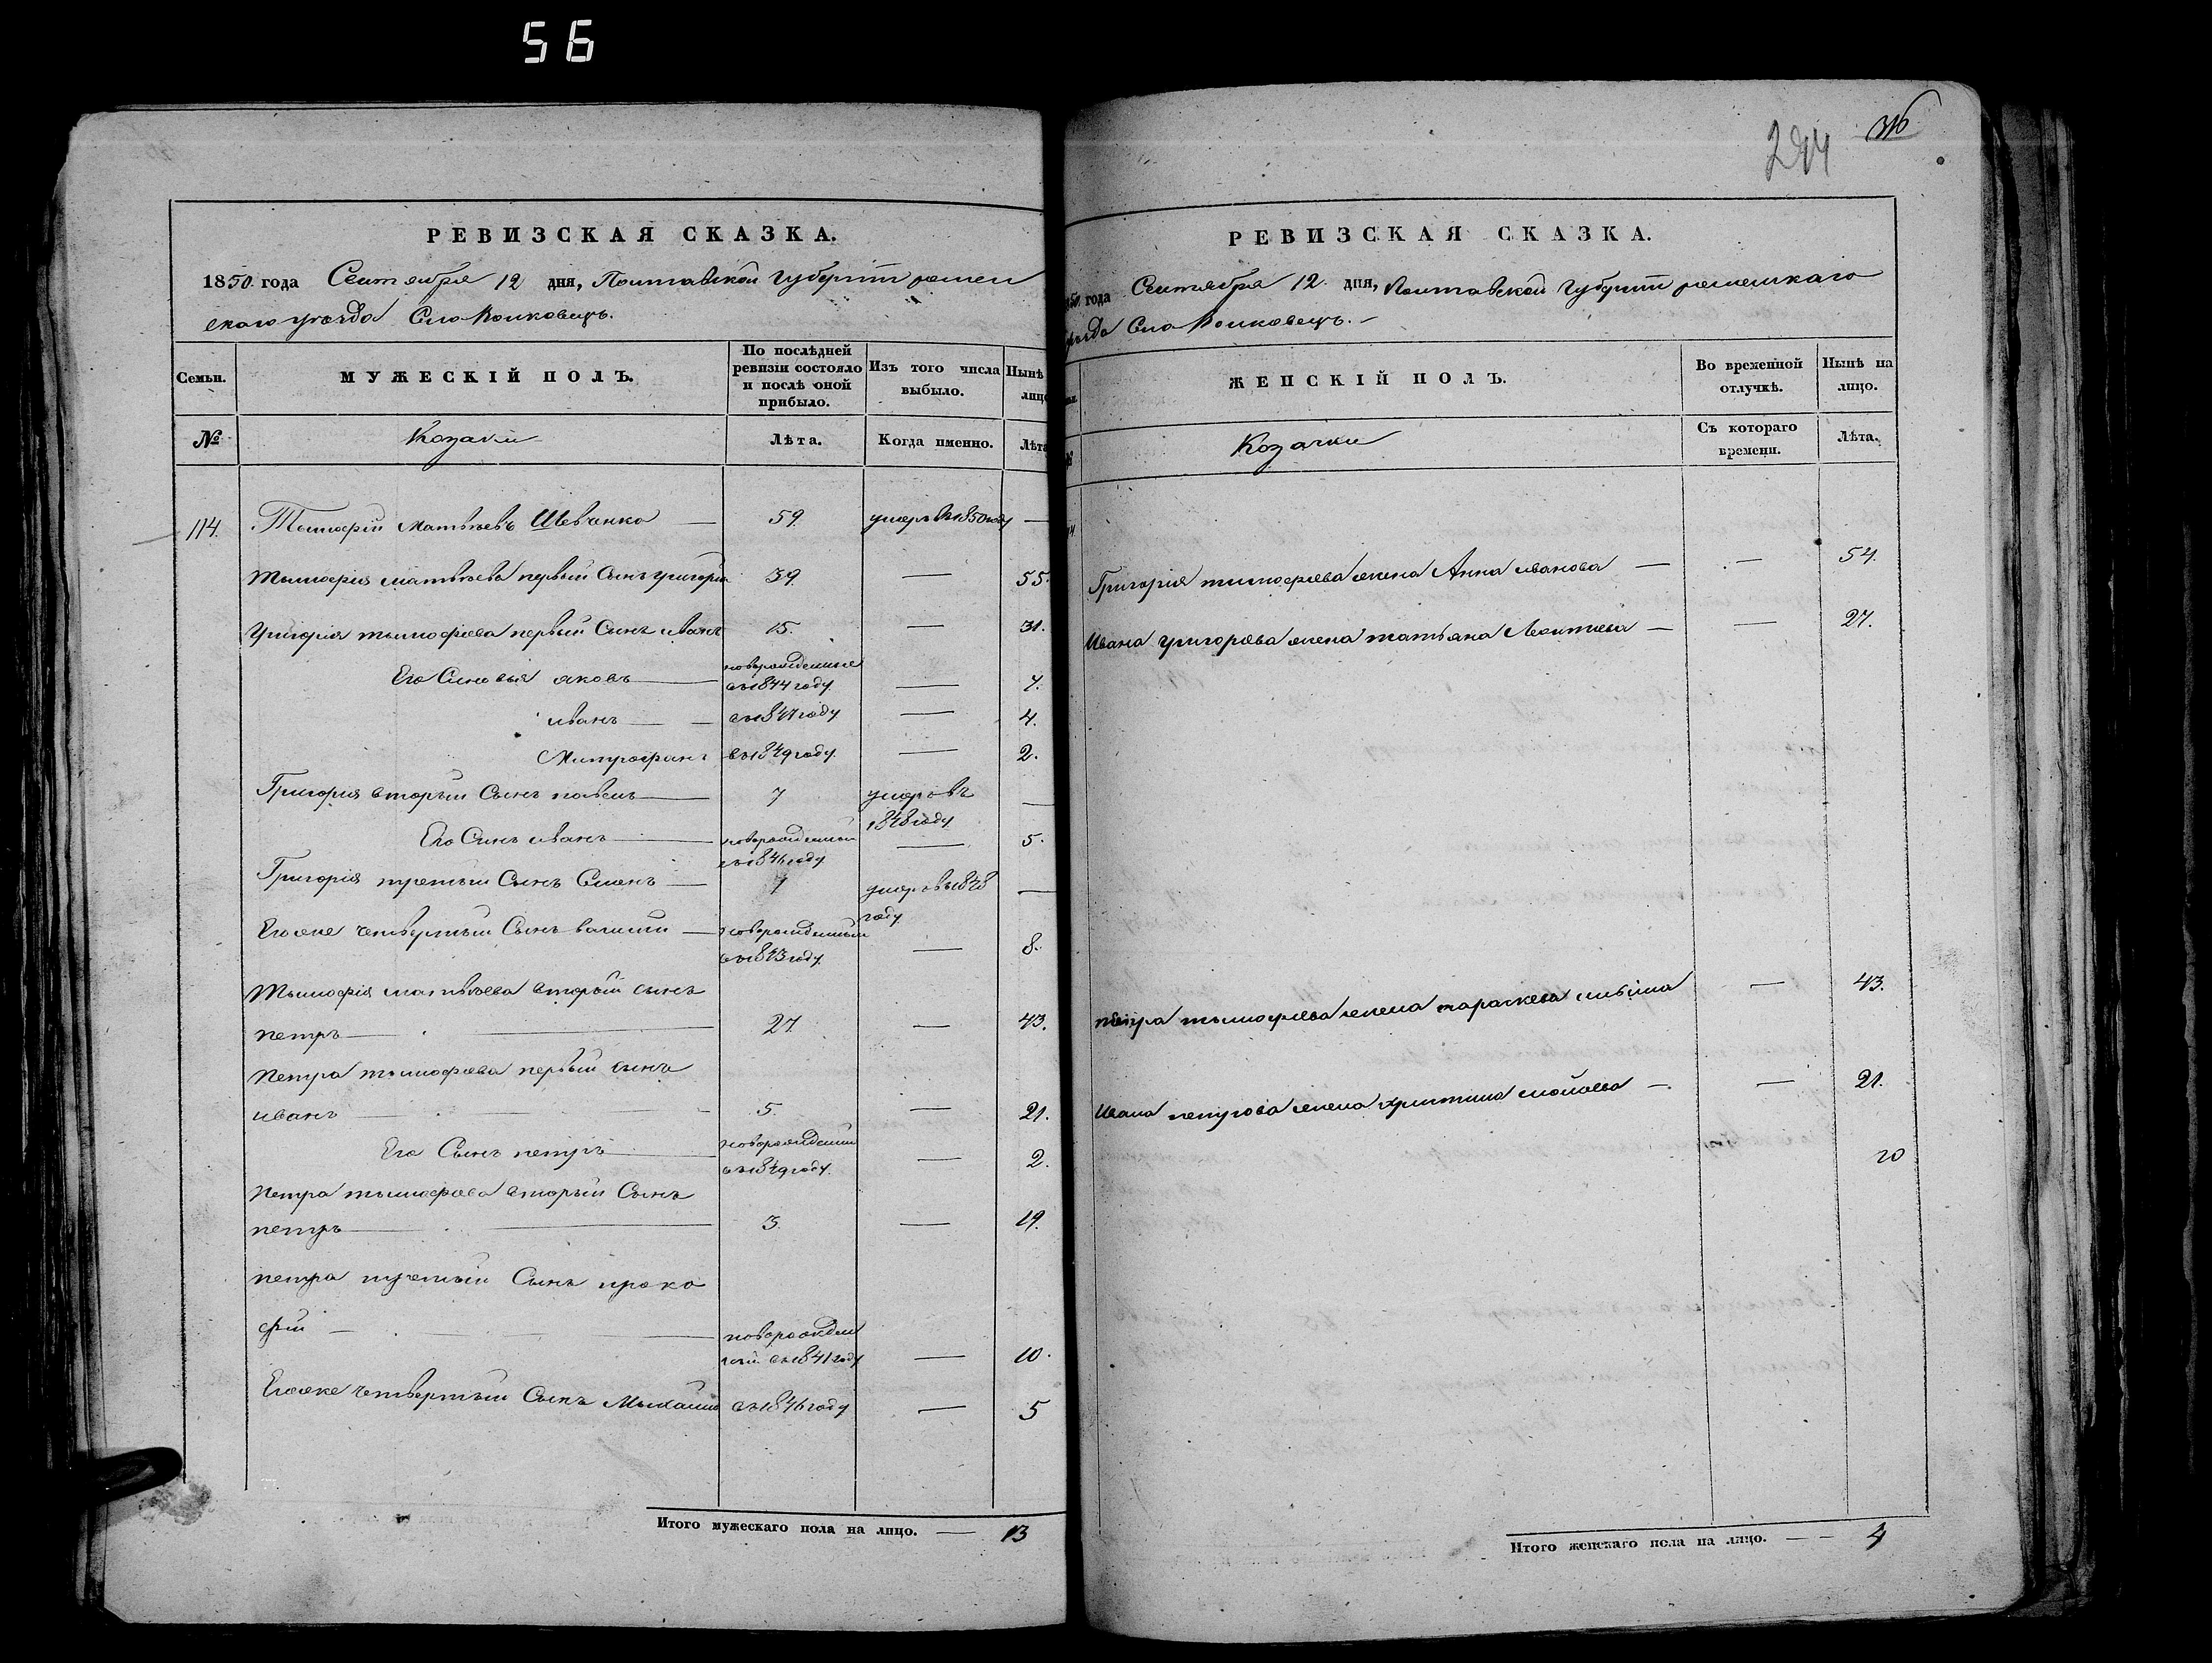 56
РЕВИЗСКАЯ СКАЗКА.
1850 года Сентября 12 дня, Полтавской Губерніи ромен
скаго уезда Село Волковецъ.
Семьи.
МУЖЕСКІЙ ПОЛЪ.
По послѣдней ревизіи состояло и послѣ оной прибыло.
Изъ того числа выбыло.
Нынѣ лицо
№
Козаки
Лѣта.
Когда именно.
Лѣта
114. Тымофій Матвѣевъ Шевченко — 59. умеръ въ 1850 году —
Тымофія матвѣева первый Сынъ григорій 39. — 55.
Григорія тымофіева первый Сынъ иванъ 15. — 31.
Его Сыновья яковъ — новорожденные съ 1844 году — 7.
иванъ — съ 1847 году — 4.
Митрофанъ съ 1849 году — 2.
Григорія вторый Сынъ павелъ — 7 умеръ въ 1848 году —
Его Сынъ иванъ — новорожденный съ 1846 году — 5.
Григорія третьій Сынъ Семенъ — 1 умеръ въ 1848 году —
Егоже четвертый Сынъ — новорожденный съ 1843 году — 8.
Тымофія матвѣева вторый сынъ
петръ — 27. — 43.
Петра тымофіева первый сынъ
иванъ — 5. — 21.
Его Сынъ петръ — новорожденный съ 1849 году — 2.
Петра тымофіева вторый Сынъ
петръ — 3. — 19.
петра третьій Сынъ проко
фій — новорожденный съ 1841 году — 10.
Егоже четвертый Сынъ Мыхайло съ 1846 году — 5
Итого мужескаго пола на лицо. — 13
294
РЕВИЗСКАЯ СКАЗКА.
года Сентября 12 дня, Полтавской Губерніи роменскаго
уезда Село Волковецъ. —
ЖЕНСКІЙ ПОЛЪ.
Во временной отлучкѣ.
Нынѣ на лицо.
Козачки
Съ котораго времени.
Лѣта.
Григорія тимофіева жена Анна иванова — — 54.
Ивана григорева жена татьяна Леонтіева — — 27.
петра тымофіева жена параскева — 43.
Ивана петрова жена христина — — 21.
20
Итого женскаго пола на лицо. — — 4